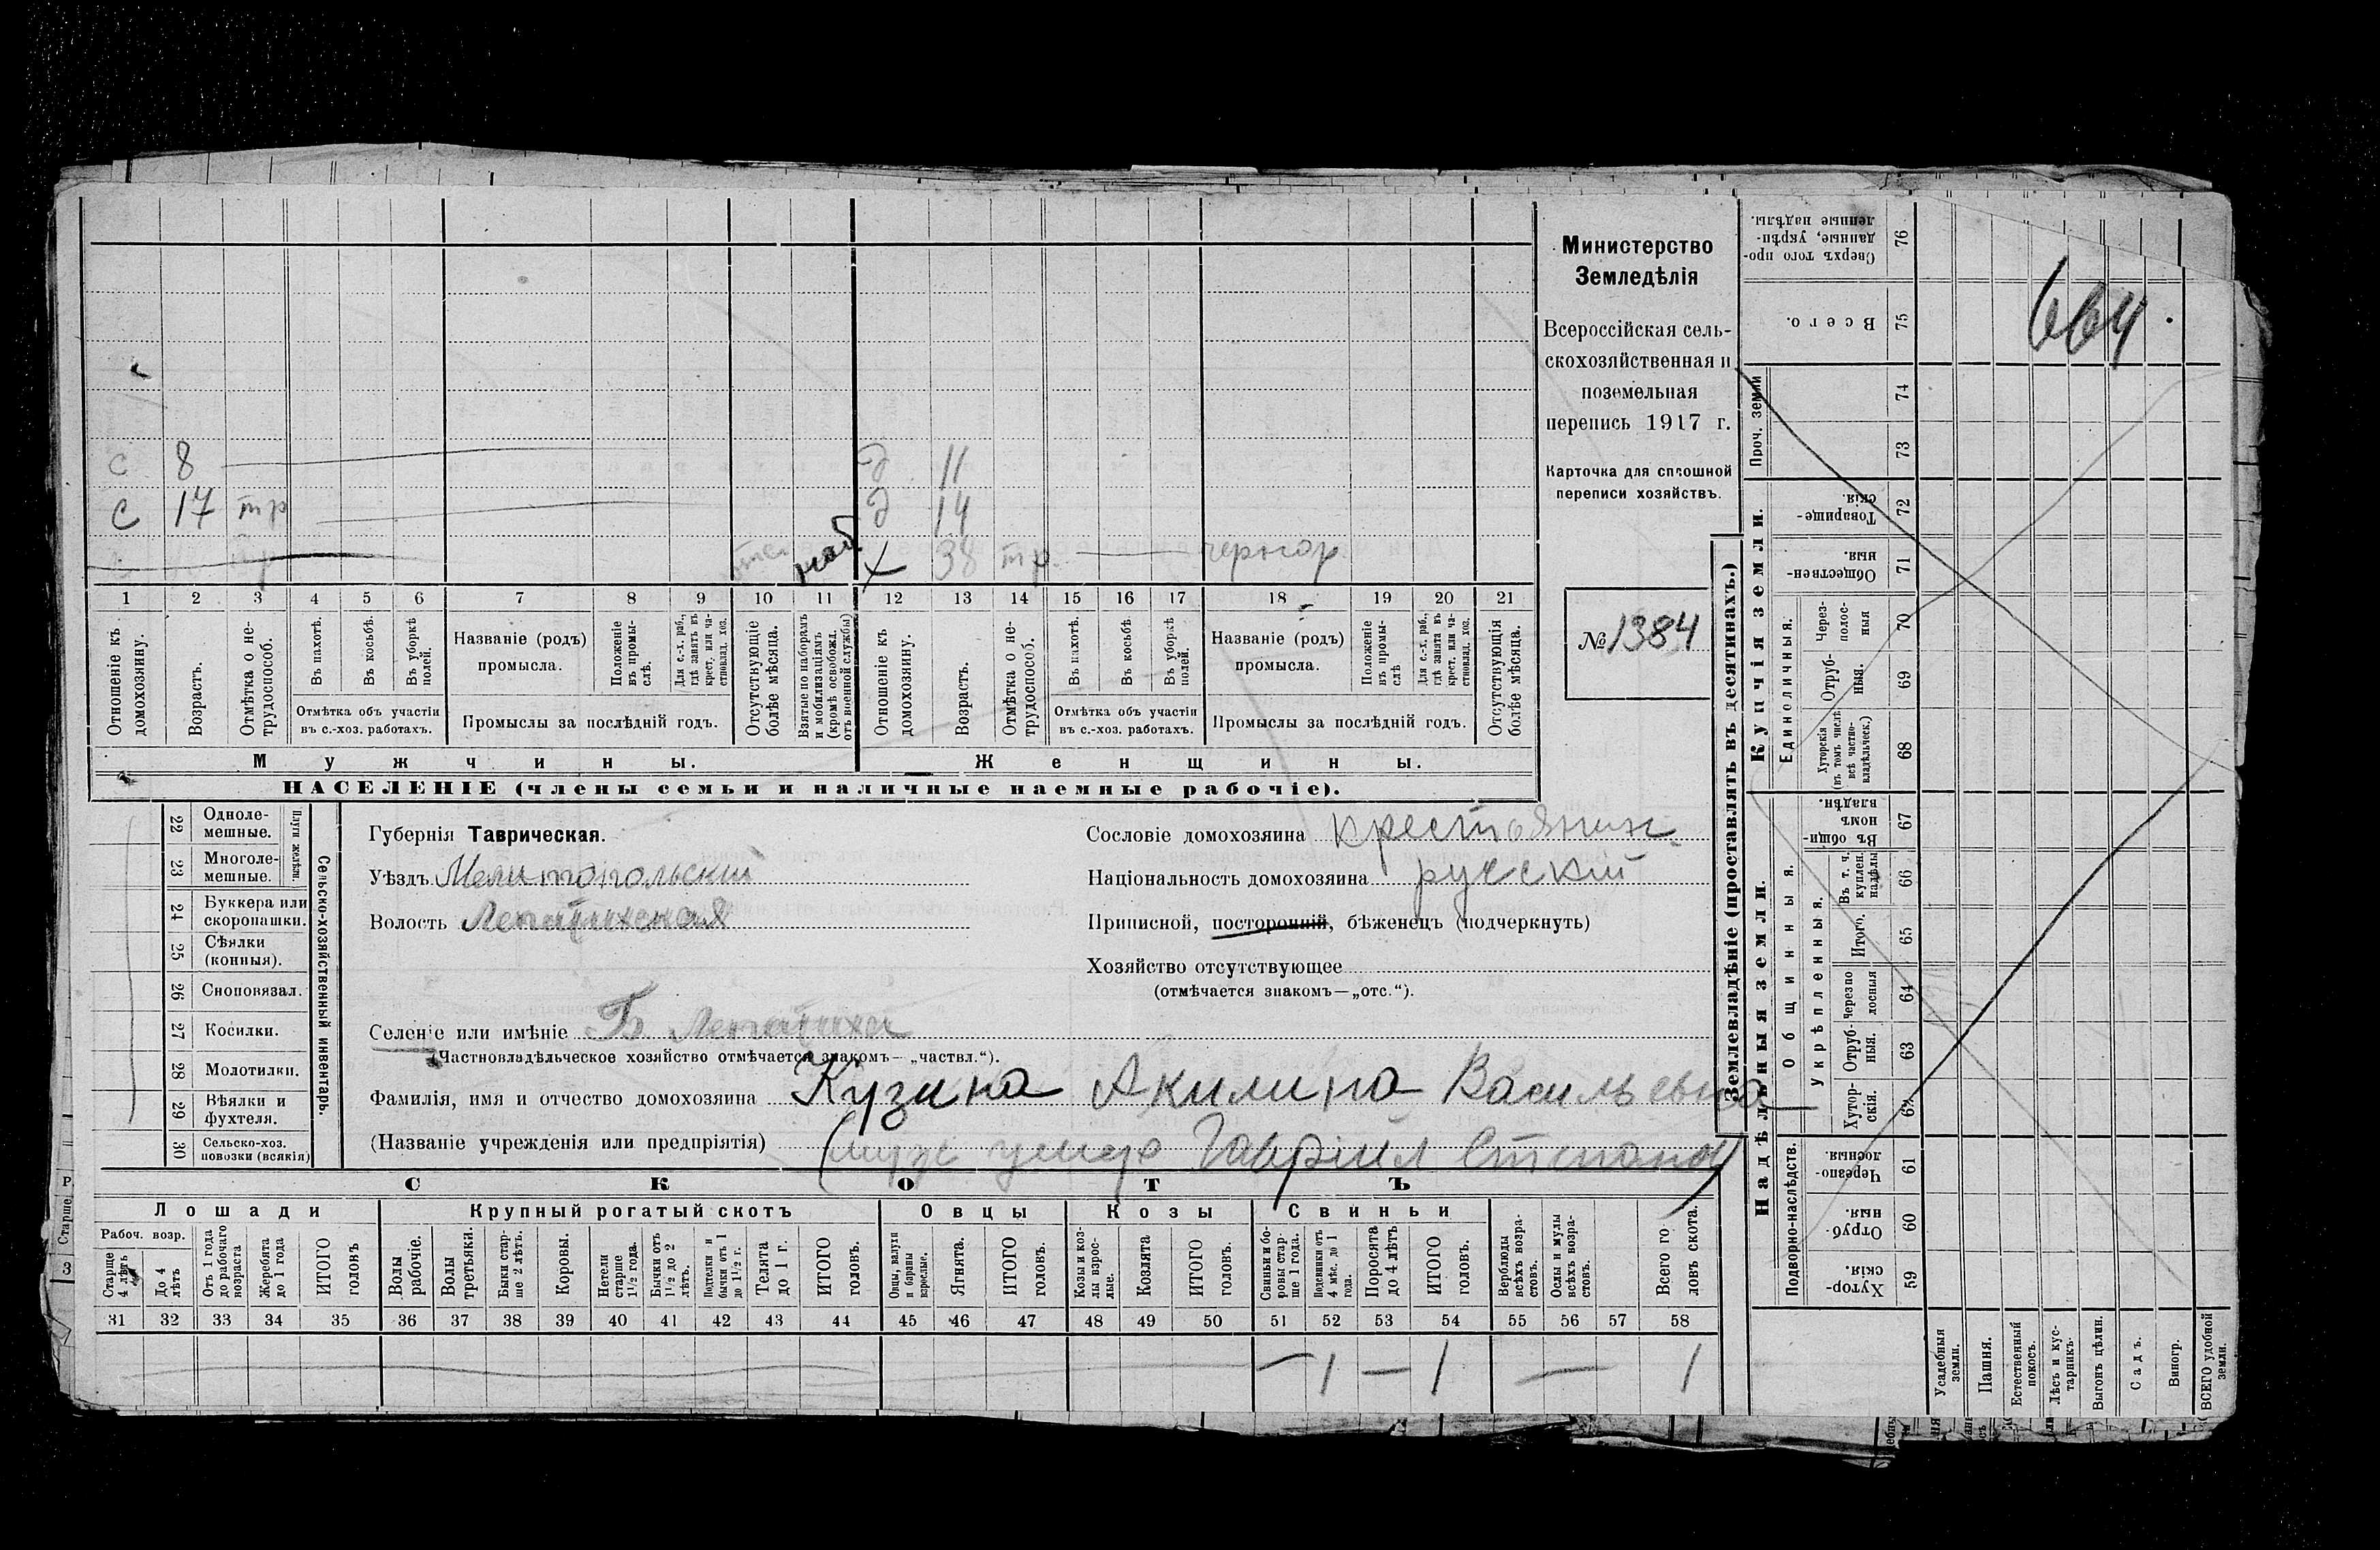 Министерство
Земледѣлія
Всероссійская сель-
скохозяйственная и
поземельная
перепись 1917 г.
Карточка для сплошной
переписи хозяйствъ.
№ 1384
664.
с 8 д 11
с 17 тр д 14
наб. х 38 тр. чернор.
1 2 3 4 5 6 7 8 9 10 11 12 13 14 15 16 17 18 19 20 21
Отношеніе къ домохозяину.
Возрастъ.
Отмѣтка о не-трудоспособ.
Въ пахотѣ.
Въ косьбѣ.
Въ уборкѣ полей.
Отмѣтка объ участіи
въ с.-хоз. работахъ.
Названіе (родъ)
промысла.
Положеніе въ промы-слѣ.
Для с.-х. раб., гдѣ занятъ въ крест. или ча-стновлад. хоз.
Промыслы за послѣдній годъ.
Отсутствующіе болѣе мѣсяца.
Взятые по наборамъ и мобилизаціямъ (кромѣ освобожд. отъ военной службы)
Отношеніе къ домохозяину.
Возрастъ.
Отмѣтка о не-трудоспособ.
Въ пахотѣ.
Въ косьбѣ
Въ уборкѣ полей.
Отмѣтка объ участіи
въ с.-хоз. работахъ.
Названіе (родъ)
промысла.
Положеніе въ промы-слѣ
Для с.-х. раб., гдѣ занята въ крест. или ча-стновлад. хоз.
Промыслы за послѣдній годъ.
Отсутствующія болѣе мѣсяца.
Мужчины.
Женщины.
НАСЕЛЕНІЕ (члены семьи и наличные наемные рабочіе).
Сельско-хозяйственный инвентарь.
Плуги желѣзн.
22 Одноле-мешные.
23 Многоле-мешные.
24 Буккера или скоропашки.
25 Сѣялки (конныя).
26 Сноповязал.
27 Косилки.
28 Молотилки.
29 Вѣялки и фухтеля.
30 Сельско-хоз. повозки (всякія)
Губернія Таврическая.
Уѣздъ Мелитопольскій
Волость Лепатихская
Селеніе или имѣніе Б Лепатиха
(Частновладѣльческое хозяйство отмѣчается знакомъ—„частвл.“).
Фамилія, имя и отчество домохозяина Кузина Акилина Васильевна
(Названіе учрежденія или предпріятія) (мужъ умеръ Гавріил Степанов)
Сословіе домохозяина крестьянин
Національность домохозяина русскій
Приписной, посторонній, бѣженецъ (подчеркнуть)
Хозяйство отсутствующее
(отмѣчается знакомъ—„отс.“).
СКОТЪ
Лошади Крупный рогатый скотъ Овцы Козы Свиньи
Рабоч. возр.
Старше 4 лѣтъ
До 4 лѣтъ
Отъ 1 года до рабочаго возраста
Жеребята до 1 года
ИТОГО головъ
Волы рабочіе.
Волы третьяки.
Быки стар-ше 2 лѣтъ.
Коровы.
Нетели старше 1 1/2 года.
Бычки отъ 1 1/2 до 2 лѣтъ.
Подтелки и бычки отъ 1 до 1 1/2 г.
Телята до 1 г.
ИТОГО головъ.
Овцы, валухи и бараны взрослые.
Ягнята.
ИТОГО головъ.
Козы и коз-лы взрос-лые.
Козлята
ИТОГО головъ.
Свиньи и бо-ровы стар-ше 1 года.
Подсвинки отъ 4 мѣс. до 1 года.
Поросята до 4 лѣтъ
ИТОГО головъ.
Верблюды всѣхъ возра-стовъ.
Ослы и мулы всѣхъ возра-стовъ.
Всего го ловъ скота.
31 32 33 34 35 36 37 38 39 40 41 42 43 44 45 46 47 48 49 50 51 52 53 54 55 56 57 58
— 1 — 1 — 1
Землевладѣніе (проставлять въ десятинахъ.)
Надѣльныя земли.
Купчія земли.
Проч. земли
Подворно-наслѣдств.
Общинныя.
Укрѣпленныя.
Единоличныя.
76 Сверхъ того про-данные, укрѣп-ленные надѣлы.
75 Всего.
74
73
72 Товарище-скія.
71 Обществен-ныя.
70 Через-полос-ныя
69 Отруб-ныя.
68 Хуторскія (въ томъ числѣ всѣ частно-владѣльческ.)
67 Въ общи-номъ владѣн.
66 Въ т. ч. куплен. надѣлы
65 Итого.
64 Черезпо лосныя
63 Отруб-ныя.
62 Хутор-скія.
61 Черезпо-лосныя.
60 Отруб-ныя.
59 Хутор-скія.
Усадебныя земли.
Пашня.
Естественный покосъ.
Лѣсъ и кус-тарникъ.
Выгонъ цѣлин.
Садъ.
Виногр.
ВСЕГО удобной земли.